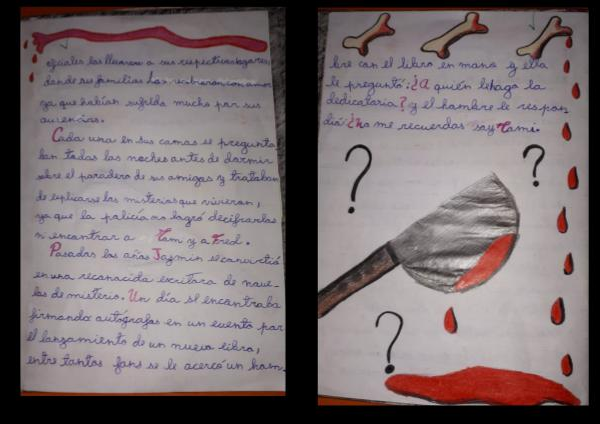 oficiales las llevaron a sus respectivos lugares,
donde sus familias las recibieron con amor
ya que habían sufrido mucho por sus
ausencias.
Cada una en sus camas se pregunta
ban todas las noches antes de dormir
sobre el paradero de sus amigas y trataban
de explicarse los misterios que vivieron,
ya que la policía no logró decifrarlos
ni encontrar a Tam y a Fred.
Pasados los años Jazmin se convirtió
en una reconocida escritora de nove-
las de misterio. Un día se encontraba
firmando autógrafos en un evento por
el lanzamiento de un nuevo libro,
entre tantos fans se le acercó un hom-
bre con el libro en mano y ella
le preguntó: ¿A quién le hago la
dedicatoria? y el hombre le respon
dió: ¿No me recuerdas soy Tami.
? ?
?